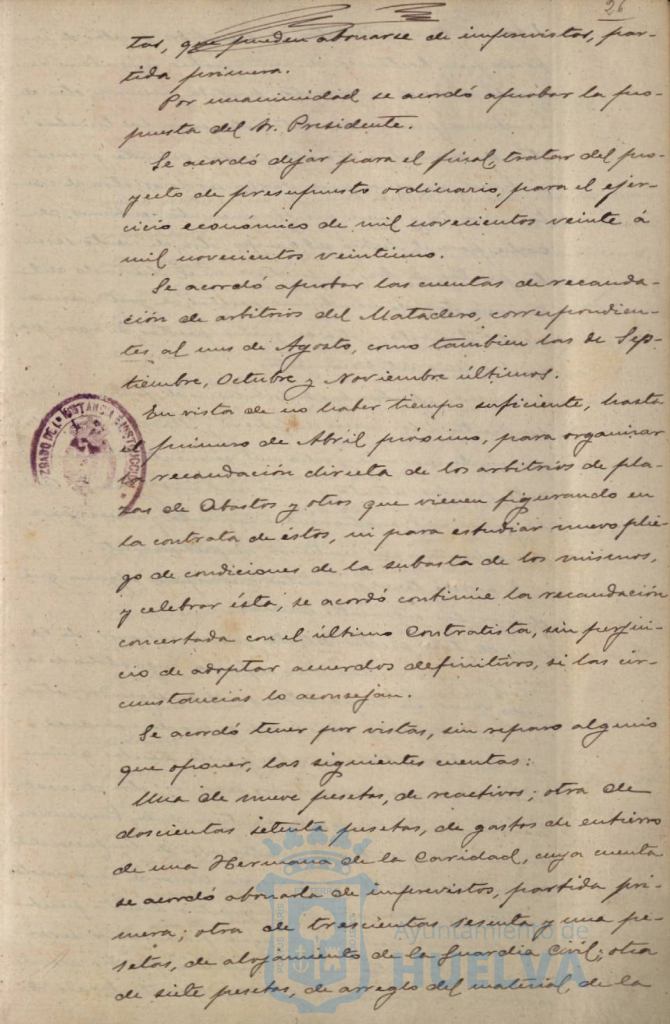 26
tos, que pueden abonarse de imprevistos, par-
tida primera.
Por unanimidad se acordó aprobar la pro-
puesta del Sr. Presidente.
Se acordó dejar para el final, tratar del pro-
yecto de presupuesto ordinario, para el ejer-
cicio económico de mil novecientos veinte á
mil novecientos veintiuno.
Se acordó aprobar las cuentas de recauda-
ción de arbitrios del Matadero, correspondien-
tes, al mes de Agosto, como tambien las de Sep-
tiembre, Octubre y Noviembre últimos.
En vista de no haber tiempo suficiente, hasta
primero de Abril próximo, para organizar
la recaudación directa de los arbitrios de pla-
zas de Abastos y otros que vienen figurando en
la contrata de éstos, ni para estudiar nuevo plie-
go de condiciones de la subasta de los mismos,
y celebrar ésta, se acordó continúe la recaudación
concertada con el último Contratista, sin perjui-
cio de adoptar acuerdos definitivos, si las cir-
cunstancias lo aconsejan.
Se acordó tener por vistas, sin reparo alguno
que oponer, las siguientes cuentas:
Una de nueve pesetas, de reactivos; otra de
doscientas setenta pesetas, de gastos de entierro
de una Hermana de la Caridad, cuya cuenta
se acordó abonarla de imprevistos, partida pri-
mera; otra de trescientas sesenta y una pe-
setas, de alojamiento de la Guardia Civil; otra
de siete pesetas, de arreglo del material de la
Ayuntamiento de
HUELVA